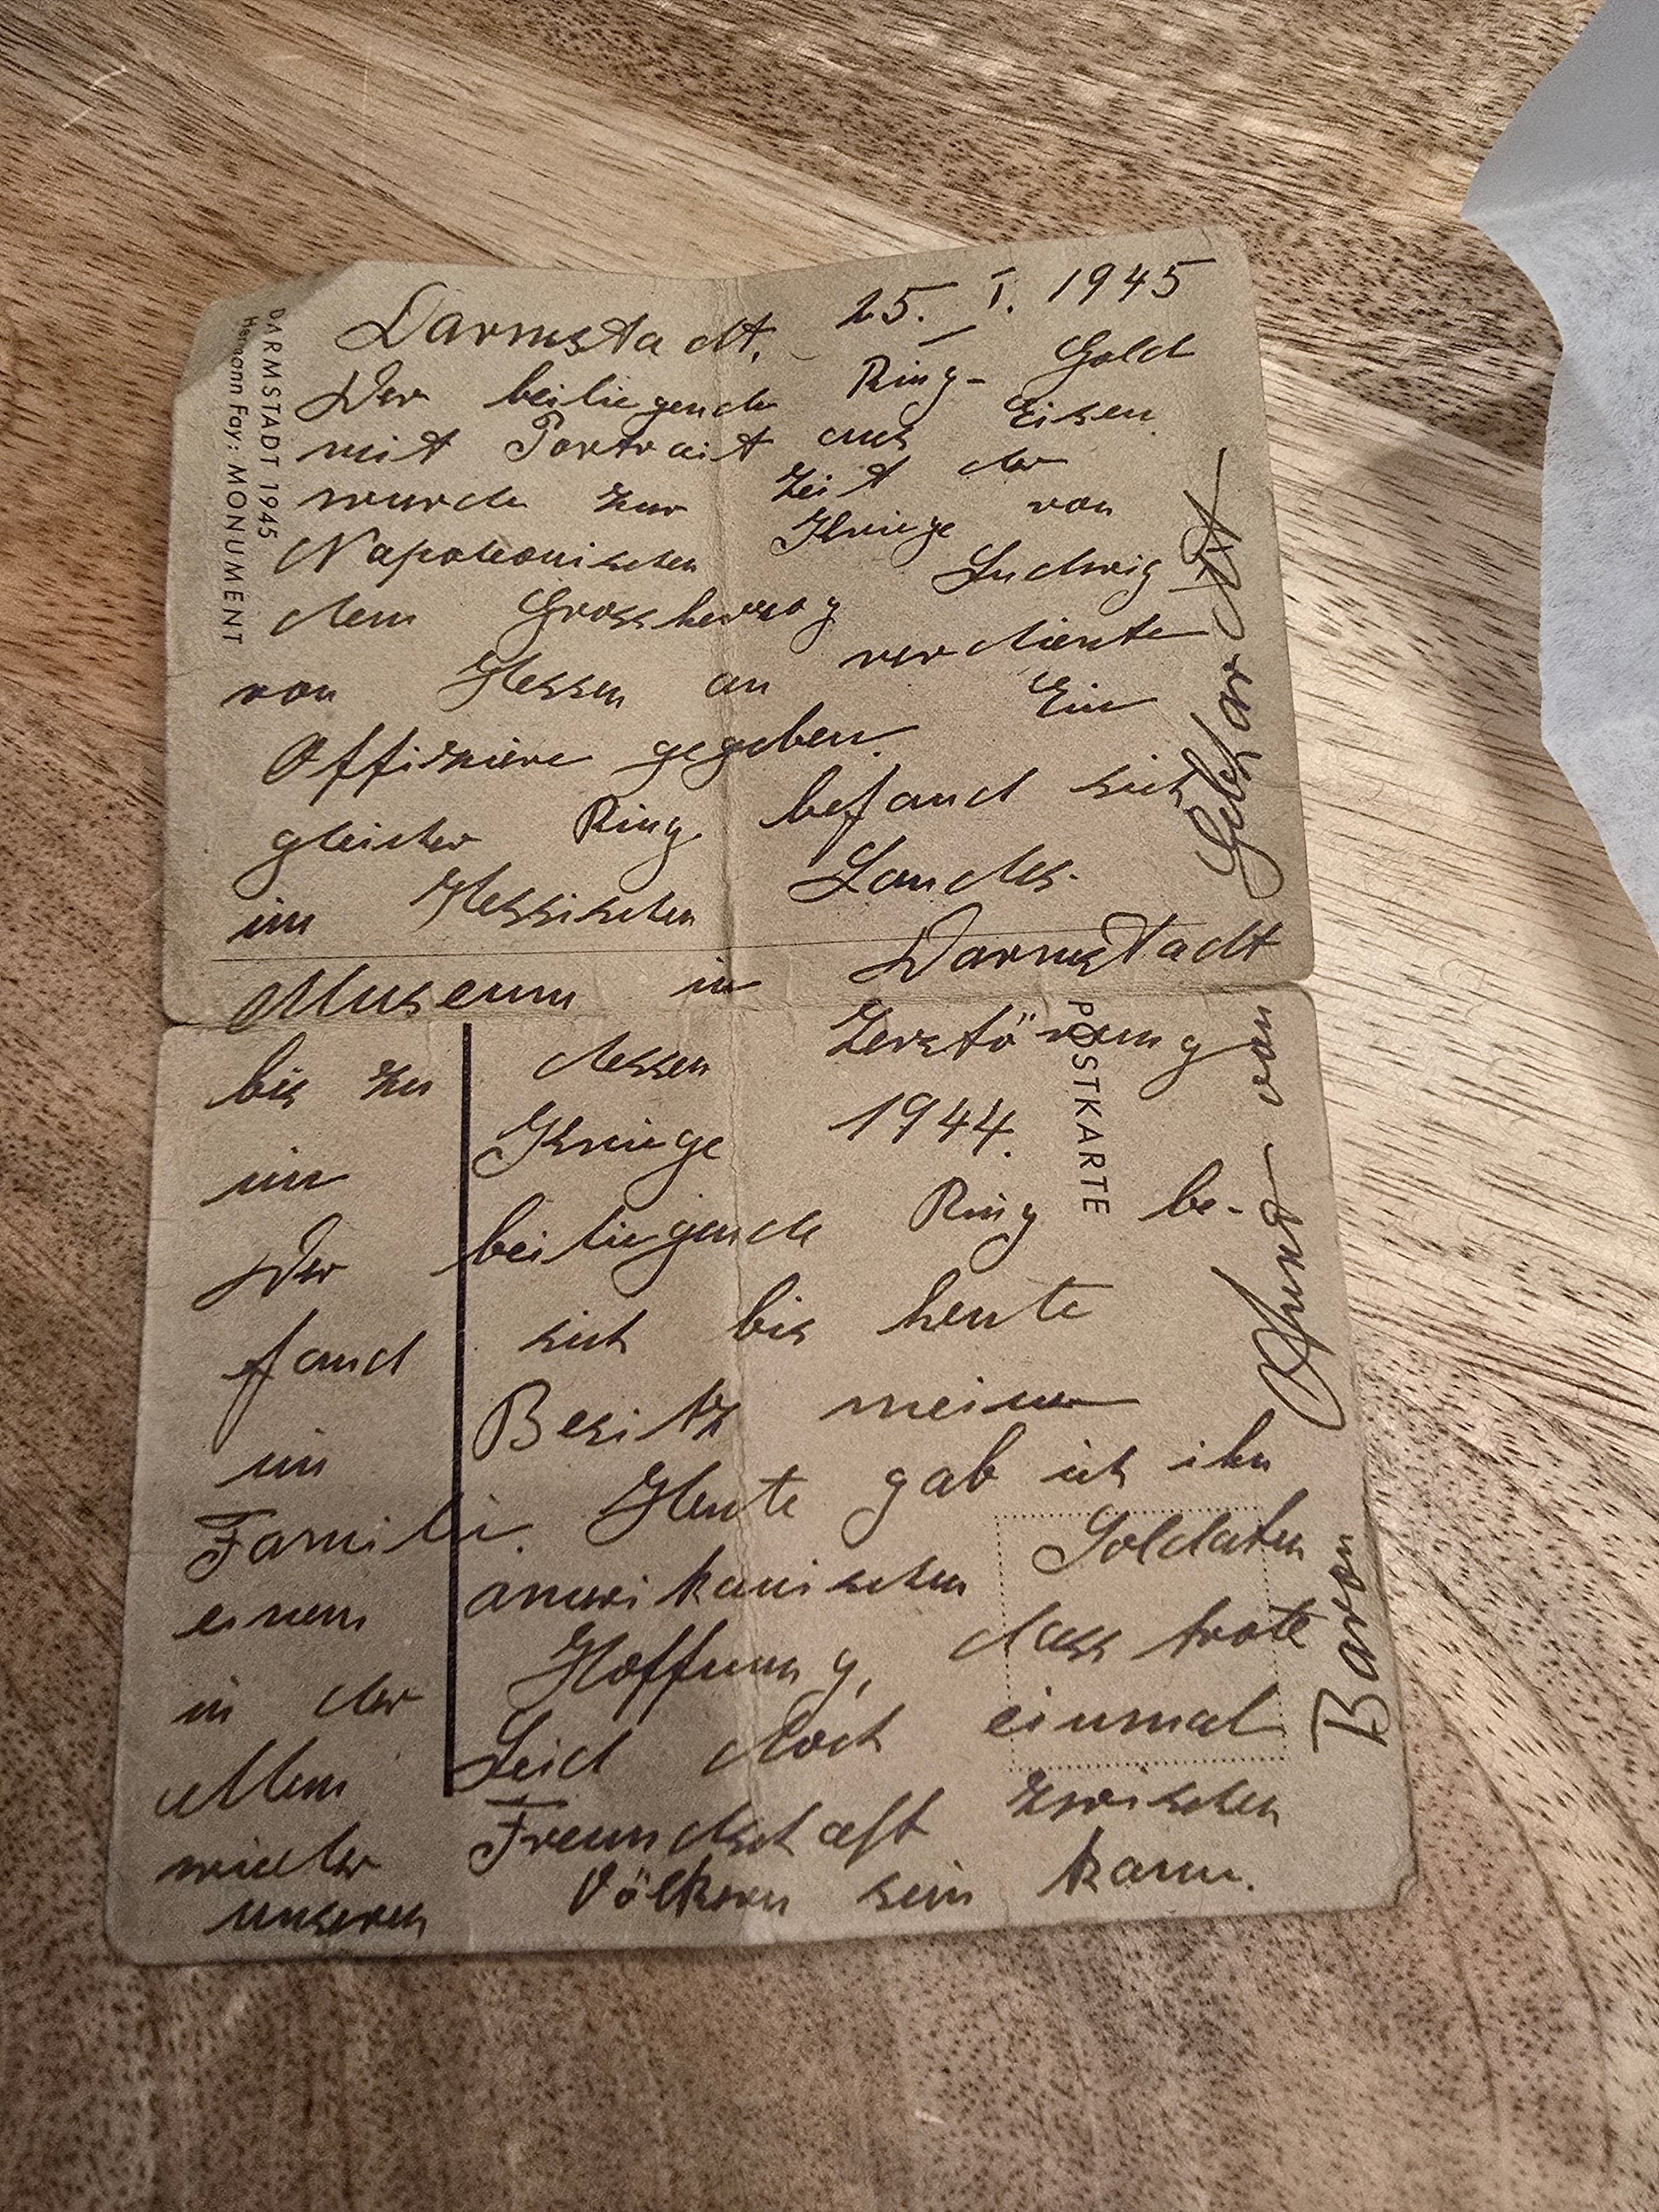 DARMSTADT 1945
Hermann Fay: MONUMENT
Darmstadt, 25. I. 1945
Der beiliegende Ring - Gold
mit Portrait aus Eisen
wurde zur Zeit der
Napoleonischen Kriege von
dem Grossherzog Ludwig
von Hessen an verdiente
Offiziere gegeben. Ein
gleicher Ring befand sich
im Hessischen Landes-
Museum in Darmstadt
bis zu dessen Zerstörung
im Kriege 1944.
Der beiliegende Ring be-
fand sich bis heute
im Besitz meiner
Familie. Heute gab ich ihn
einem amerikanischen Soldaten
in der Hoffnung, dass trotz
allem Leid doch einmal
wieder Freundschaft zwischen
unseren Völkern sein kann.
POSTKARTE
Baron von